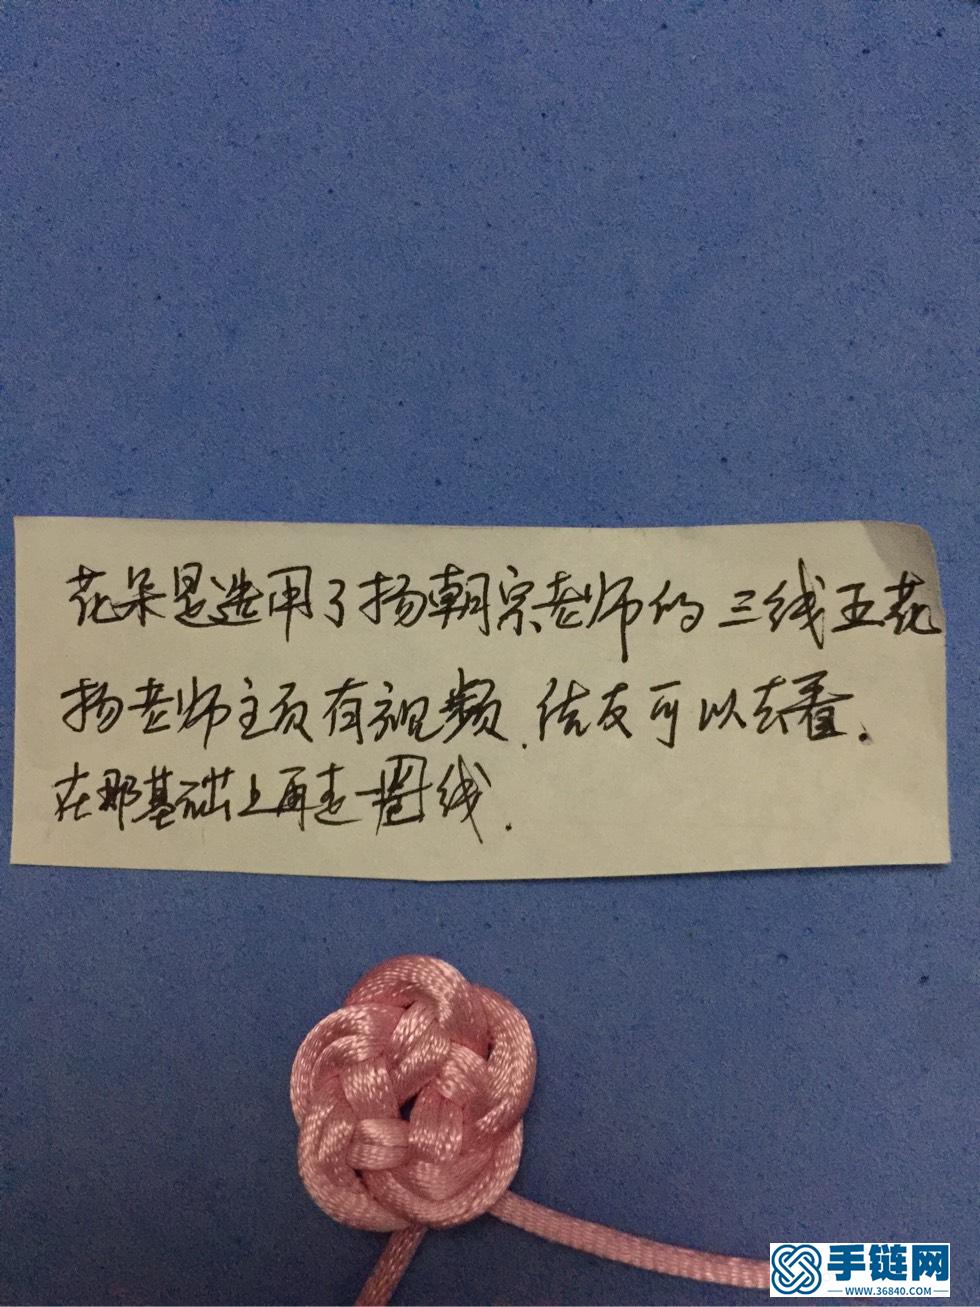 花朵是选用了扬朝宗老师的三线五花
扬老师主页有视频.结友可以去看.
在那基础上再走一圈线.
手链网
WWW.36840.COM